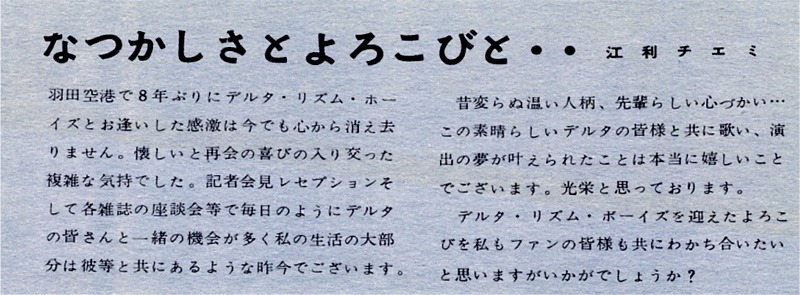 なつかしさとよろこびと・・ 江利チエミ
羽田空港で8年ぶりにデルタ・リズム・ホー
イズとお逢いした感激は今でも心から消え去
りません。懐しいと再会の喜びの入り交った
複雑な気持でした。記者会見レセプションそ
して各雑誌の座談会等で毎日のようにデルタ
の皆さんと一緒の機会が多く私の生活の大部
分は彼等と共にあるような昨今でございます。
昔変らぬ温い人柄、先輩らしい心づかい…
この素晴らしいデルタの皆様と共に歌い、演
出の夢が叶えられたことは本当に嬉しいこと
でございます。光栄と思っております。
デルタ・リズム・ボーイズを迎えたよろこ
びを私もファンの皆様も共にわかち合いたい
と思いますがいかがでしょうか？